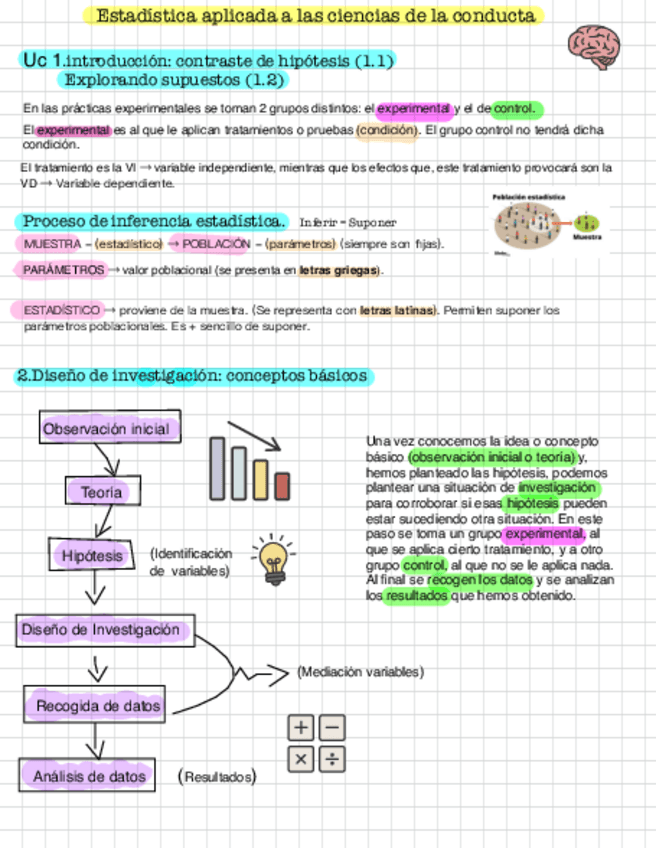 Estadística aplicada a las ciencias de la conducta
Uc 1.introducción: contraste de hipótesis (1.1)
Explorando supuestos (1.2)
En las prácticas experimentales se toman 2 grupos distintos: el experimental y el de control.
El experimental es al que le aplican tratamientos o pruebas (condición). El grupo control no tendrá dicha
condición.
El tratamiento es la VI → variable independiente, mientras que los efectos que, este tratamiento provocará son la
VD → Variable dependiente.
Proceso de inferencia estadística. Inferir = Suponer
Población estadística
Muestra
MUESTRA – (estadístico) → POBLACIÓN – (parámetros) (siempre son fijas).
PARÁMETROS → valor poblacional (se presenta en letras griegas).
ESTADÍSTICO → proviene de la muestra. (Se representa con letras latinas). Permiten suponer los
parámetros poblacionales. Es + sencillo de suponer.
2.Diseño de investigación: conceptos básicos
Observación inicial
Teoría
Hipótesis
(Identificación
de variables)
Diseño de Investigación
(Mediación variables)
Recogida de datos
Análisis de datos
(Resultados)
+ −
× ÷
Una vez conocemos la idea o concepto
básico (observación inicial o teoría) y,
hemos planteado las hipótesis, podemos
plantear una situación de investigación
para corroborar si esas hipótesis pueden
estar sucediendo otra situación. En este
paso se toma un grupo experimental, al
que se aplica cierto tratamiento, y a otro
grupo control, al que no se le aplica nada.
Al final se recogen los datos y se analizan
los resultados que hemos obtenido.